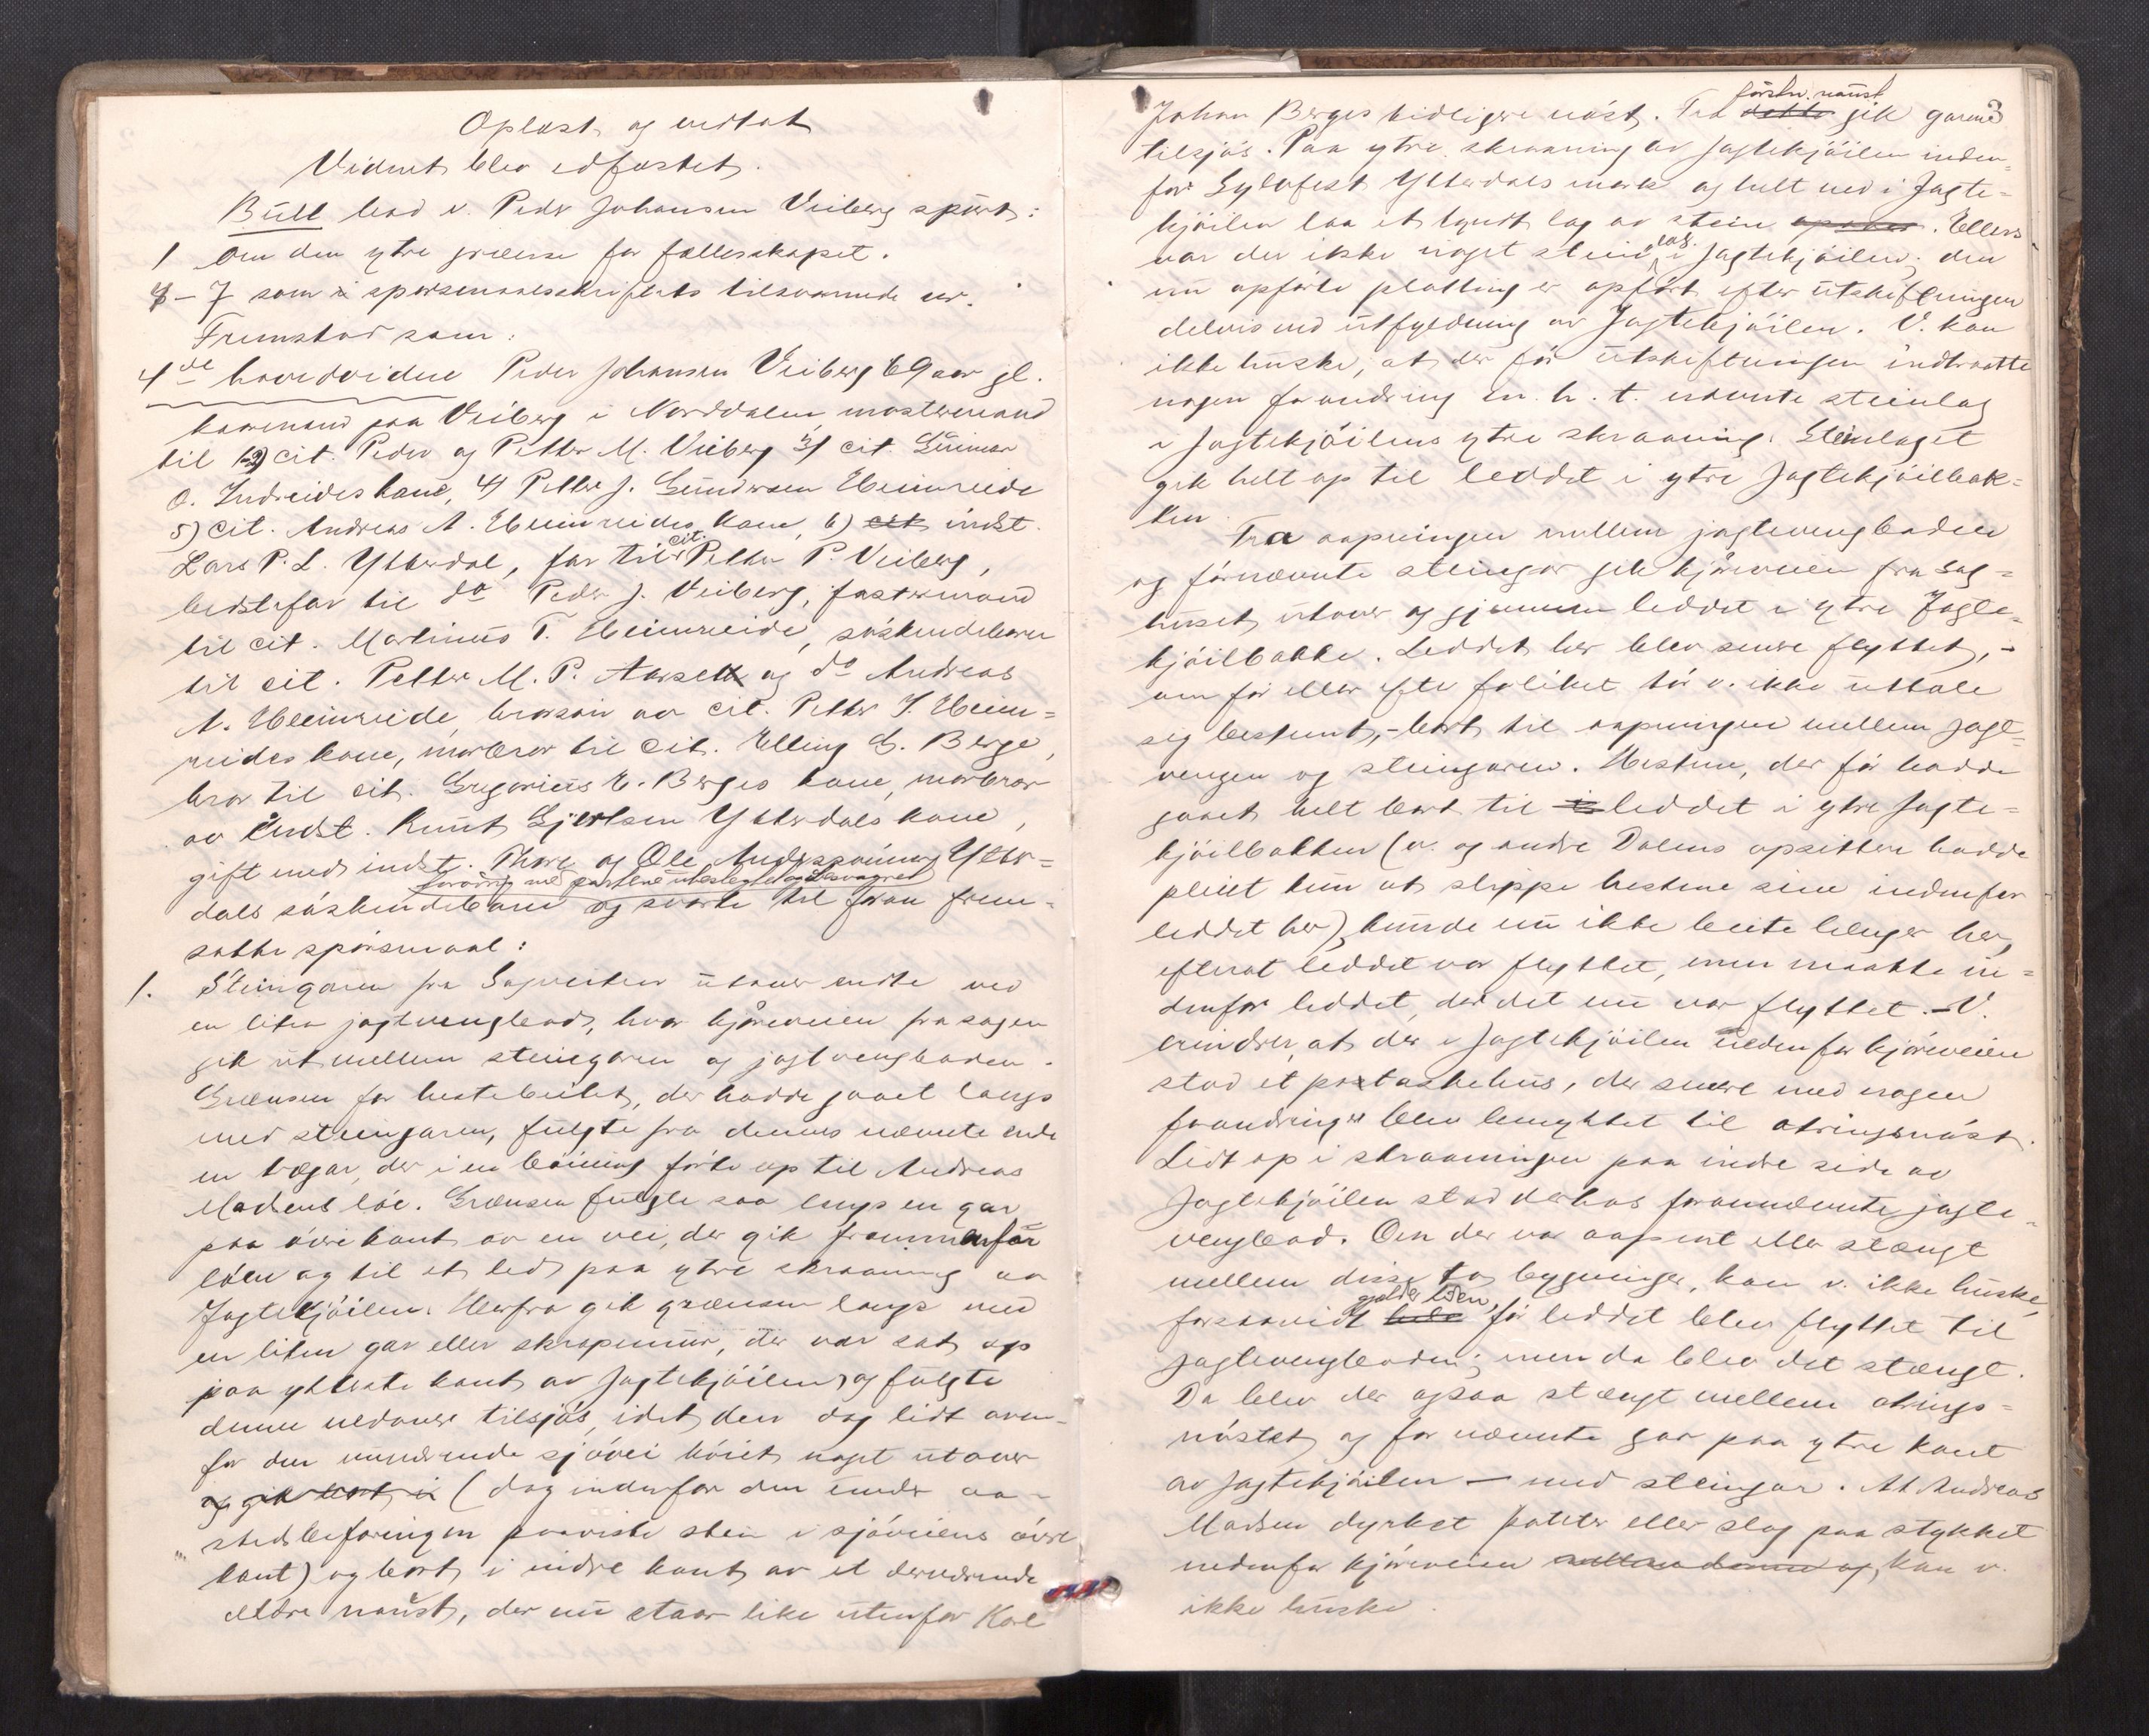 Oplæst og vedtat
Vidnet blev edfæstet.
Bull bad v. Peder Johansen Veiberg spurt:
1 Om den ytre grænse for fællesskapet.
4–7 som i spørsmaalsskriftets tilsvarende nr.
Fremstod som:
4de hovedvidne Peder Johansen Veiberg 69 aar gl.
kaarmand paa Veiberg i Norddalen, mostermand
til 1-2) cit. Peder og Petter M. Veiberg 3) cit. Gunnar
O. Indreides kone, 4) Petter J. Gundersen Heimreide
5) cit. Andreas A. Heimreides kone, 6) cit indst.
Lars P. L. Ytterdal, far til cit. Petter P. Veiberg,
bedstefar til do Peder J. Veiberg, fastermand
til cit. Martinus T. Heimreide, søskendebarn
til cit. Petter M. P. Aarseth og do Andreas
A. Heimreide, brorsøn av cit. Petter J. Heim=
reides kone, morbror til cit. Elling E. Berge,
bror til cit. Gregorius E. Berges kone, morbror
av indst. Knut Gjertsen Ytterdals kone,
gift med indst. Thore og Ole Anderssønner Ytter=
forøvrig med parterne ubeslegtet og ubesvogret
dals søskendebarn og svarte til foran frem=
satte spørsmaal:
1. Steingaren fra Sagvesten utover endte ved
en liten jagtvengbod, hvor kjøreveien fra sagen
gik ut mellem steingaren og jagtvengboden.
Grænsen for hestebeitet, der hadde gaaet langs
med steingaren, fulgte fra dennes nævnte ende
en trægar, der i en bøining førte op til Andreas
Madsens løe. Grænsen fulgte saa langs en gar
paa øvre kant av en vei, der gik frammenfor
løen og til et led paa ytre skraaning av
Jagtekjøilen. Herfra gik grænsen langs med
en liten gar eller skrapemur, der var sat op
paa ytterste kant av Jagtekjøilen, og fulgte
denne nedover tilsjøs, idet den dog lidt oven=
for den nuværende sjøvei bøiet noget utover
og gik bort i (dog indenfor den under aa=
stedsbefaringen paaviste sten i sjøveiens øvre
kant) og bort i indre kant av et derværende
ældre naust, der nu staar like utenfor Karl
3
Johan Berges tidligere nøst. Fra dette førstn. naust gik garen
tilsjøs. Paa ytre skraaning av Jagtekjøilen inden=
for Sylvfest Ytterdals mark og helt ned i Jagte=
kjøilen laa et tyndt lag av stein. Ellers
var der ikke noget steinlag i Jagtekjøilen; den
nu opførte platting er opført efter utskiftningen
delvis ved utfyldning av Jagtekjøilen. V. kan
ikke huske, at der før utskiftningen indtraatte
nogen forandring m. h. t. nævnte steinlag
i Jagtekjøilens ytre skraaning. Steinlaget
gik helt op til leddet i ytre Jagtekjøilbak=
ken.
Fra aapningen mellem jagtevengboden
og førnævnte steingar gik kjøreveien fra sag=
huset utover og gjennem leddet i ytre Jagte=
kjøilbakke. Leddet her blev senere flyttet, –
om før eller efter foliket tør v. ikke uttale
seg bestemt, – bort til aapningen mellem jagt=
vengen og steingaren. Hestene, der før hadde
gaaet helt bort til i leddet i ytre Jagte=
kjøilbakken (v. og andre Dalens opsittere hadde
pleiet kun at slippe hestene sine indenfor
leddet her), kunde nu ikke beite længer her,
efterat leddet var flyttet, men maatte in=
denfor leddet, der det nu var flyttet. – V.
erindrer, at der i Jagtekjøilen nedenfor kjøreveien
stod et postaskehus, der senere med nogen
forandringer blev benyttet til otringsnøst.
Lidt op i skraaningen paa indre side av
Jagtekjøilen stod derhos forannævnte jagte=
vengbod. Om der var aapent eller stængt
mellem disse to bygninger, kan v. ikke huske,
forsaavidt gjelder tiden, før leddet blev flyttet til
jagtevengboden; men da blev det stængt.
Da blev der ogsaa stængt mellem otrings=
nøstet og fornævnte gar paa ytre kant
av Jagtekjøilen – med steingar. At Andreas
Madsen dyrket poteter eller slog paa stykket
nedenfor kjøreveien, kan v.
ikke huske.